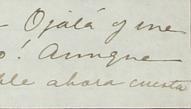 - Ojalá y me
o! Aunque
ble ahora cuesta